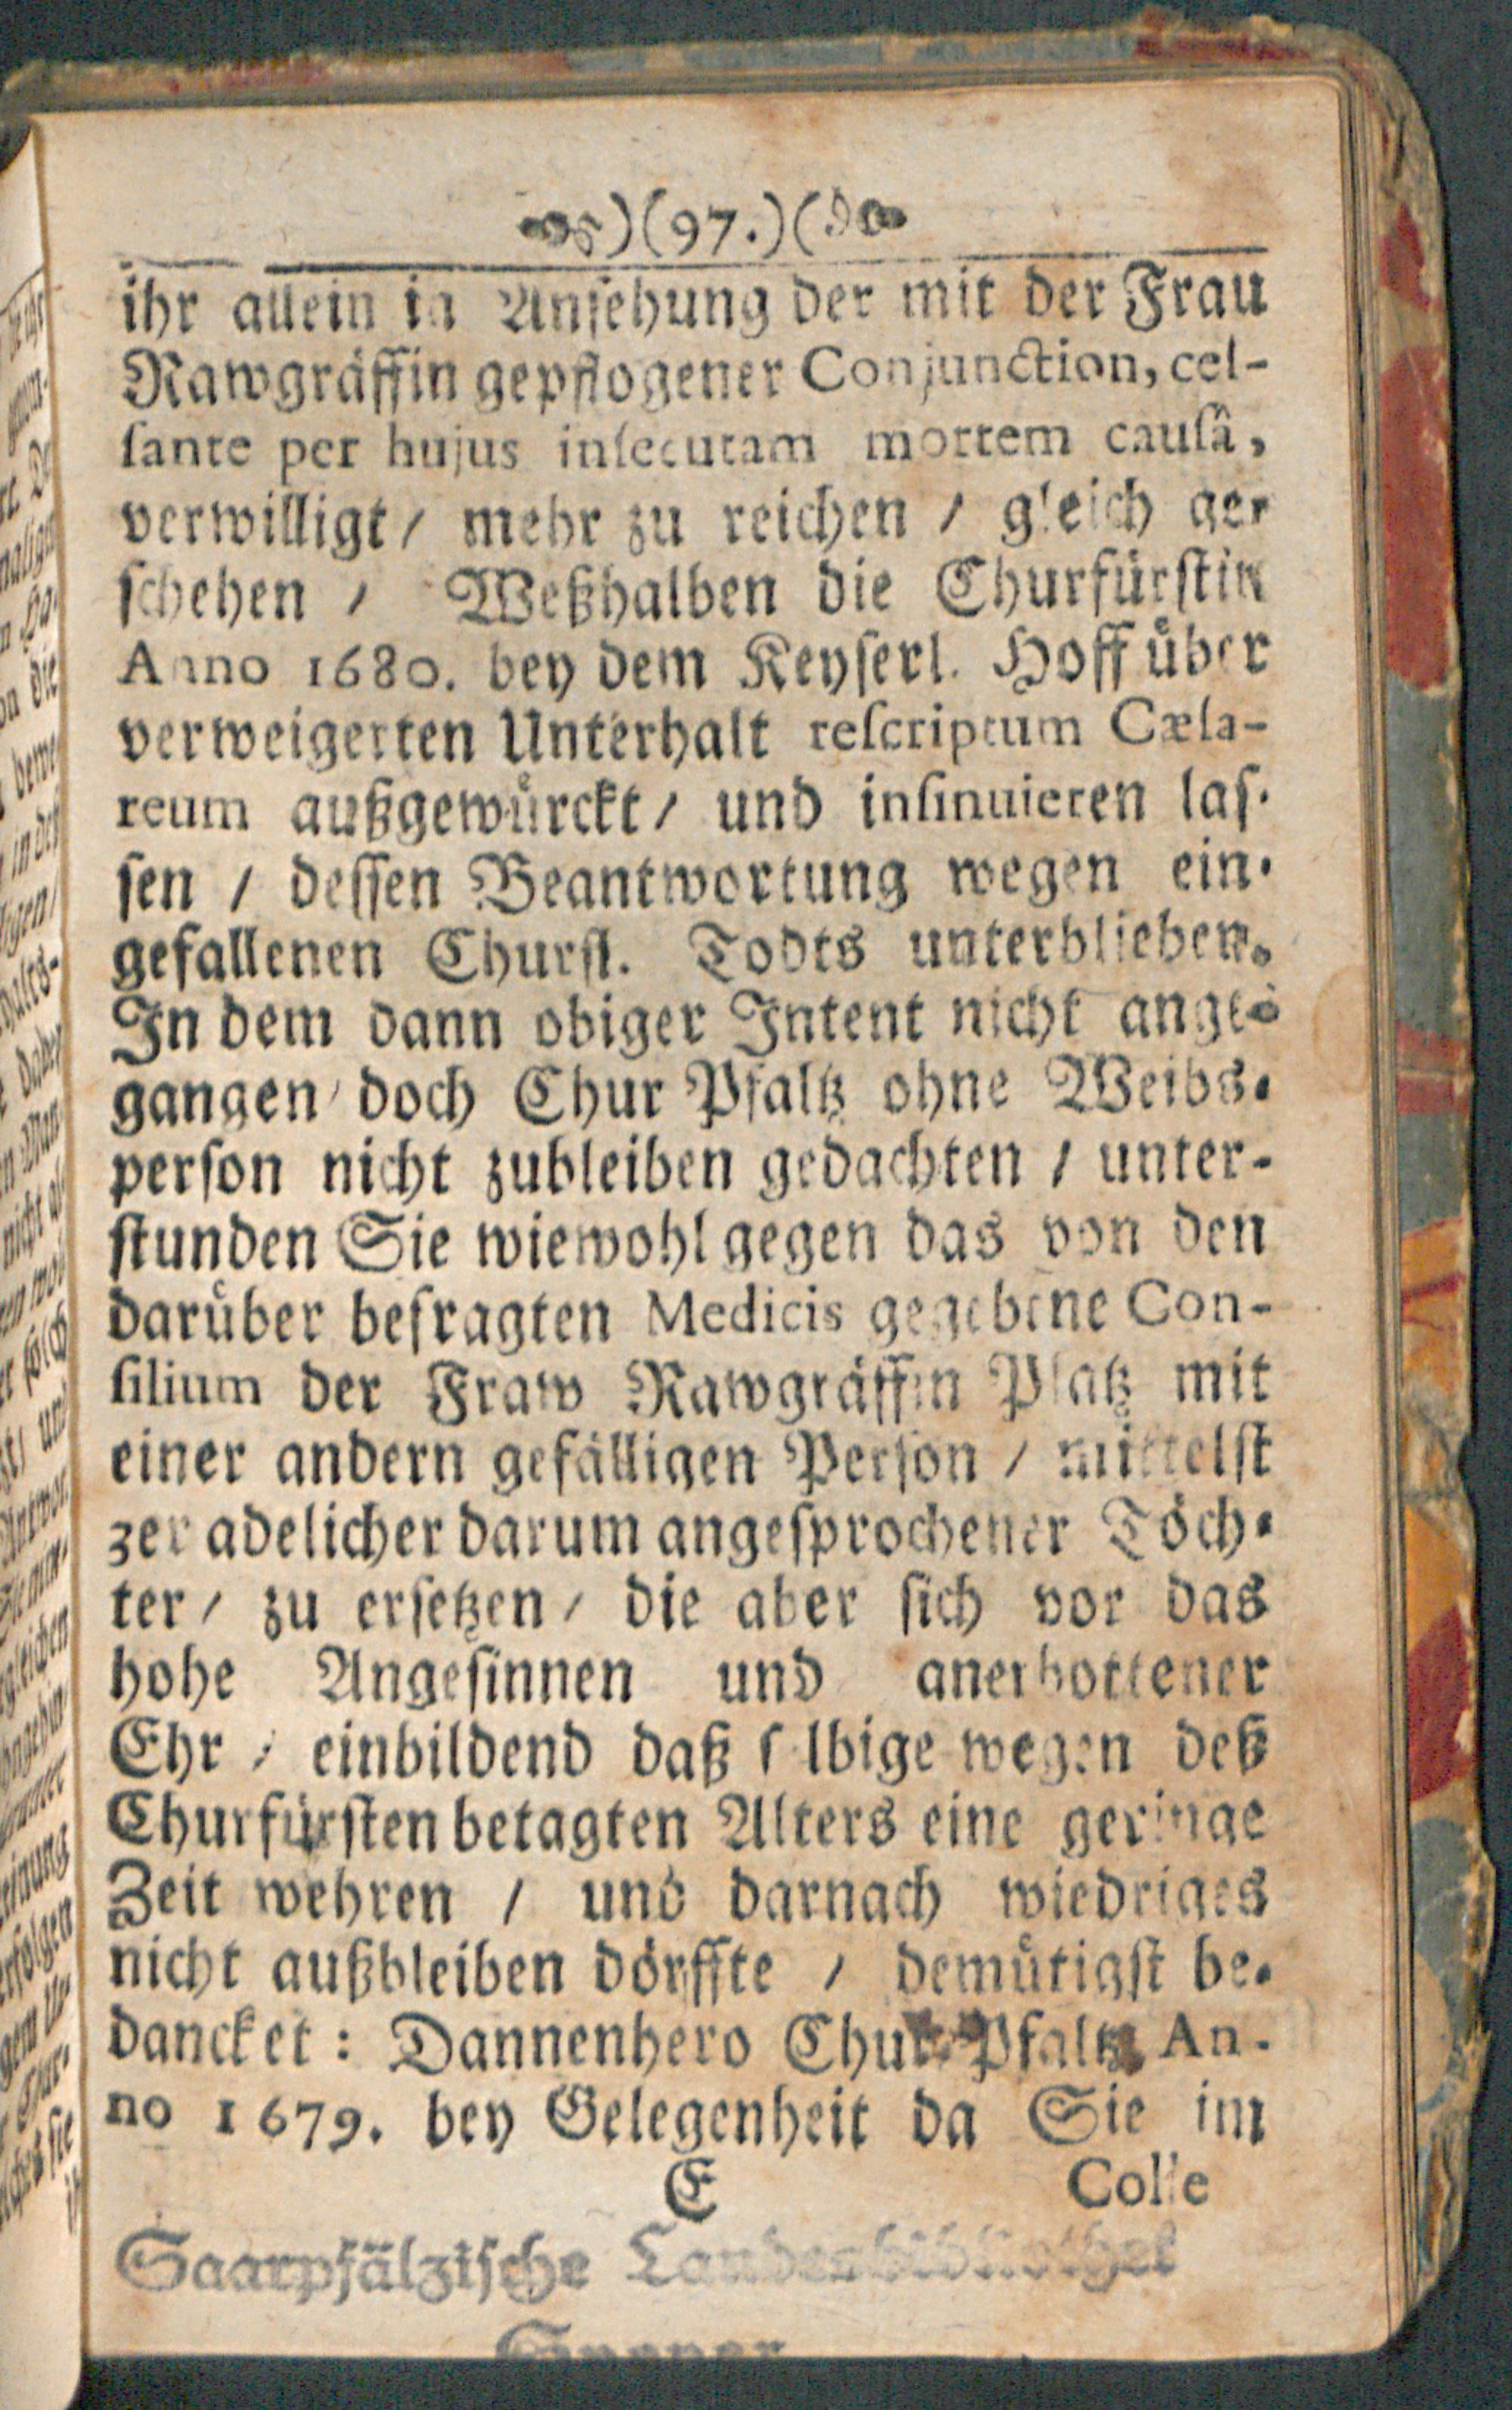 )(97.)(
ihr allein in Ansehung der mit der Frau
Rawgräffin gepflogener Conjunction, ces-
sante per hujus insecutam mortem causâ,
verwilligt / mehr zu reichen / gleich ge-
schehen / Weßhalben die Churfürstin
Anno 1680. bey dem Keyserl. Hoff über
verweigerten Unterhalt rescriptum Cæsa-
reum außgewürckt / und insinuieren las-
sen / dessen Beantwortung wegen ein-
gefallenen Churfl. Todts unterblieben.
In dem dann obiger Intent nicht ange-
gangen / doch Chur Pfaltz ohne Weibs-
person nicht zubleiben gedachten / unter-
stunden Sie wiewohl gegen das von den
darüber befragten Medicis gegebene Con-
silium der Fraw Rawgräffin Platz mit
einer andern gefälligen Person / mittelst
zer adelicher darum angesprochener Töch-
ter / zu ersetzen / die aber sich vor das
hohe Angesinnen und anerbottener
Ehr / einbildend daß selbige wegen deß
Churfürsten betagten Alters eine geringe
Zeit wehren / und darnach wiedriges
nicht außbleiben dörffte / demütigst be-
dancket: Dannenhero Chur Pfaltz An-
no 1679. bey Gelegenheit da Sie im
E Colle
Saarpfälzische Landesbibliothek